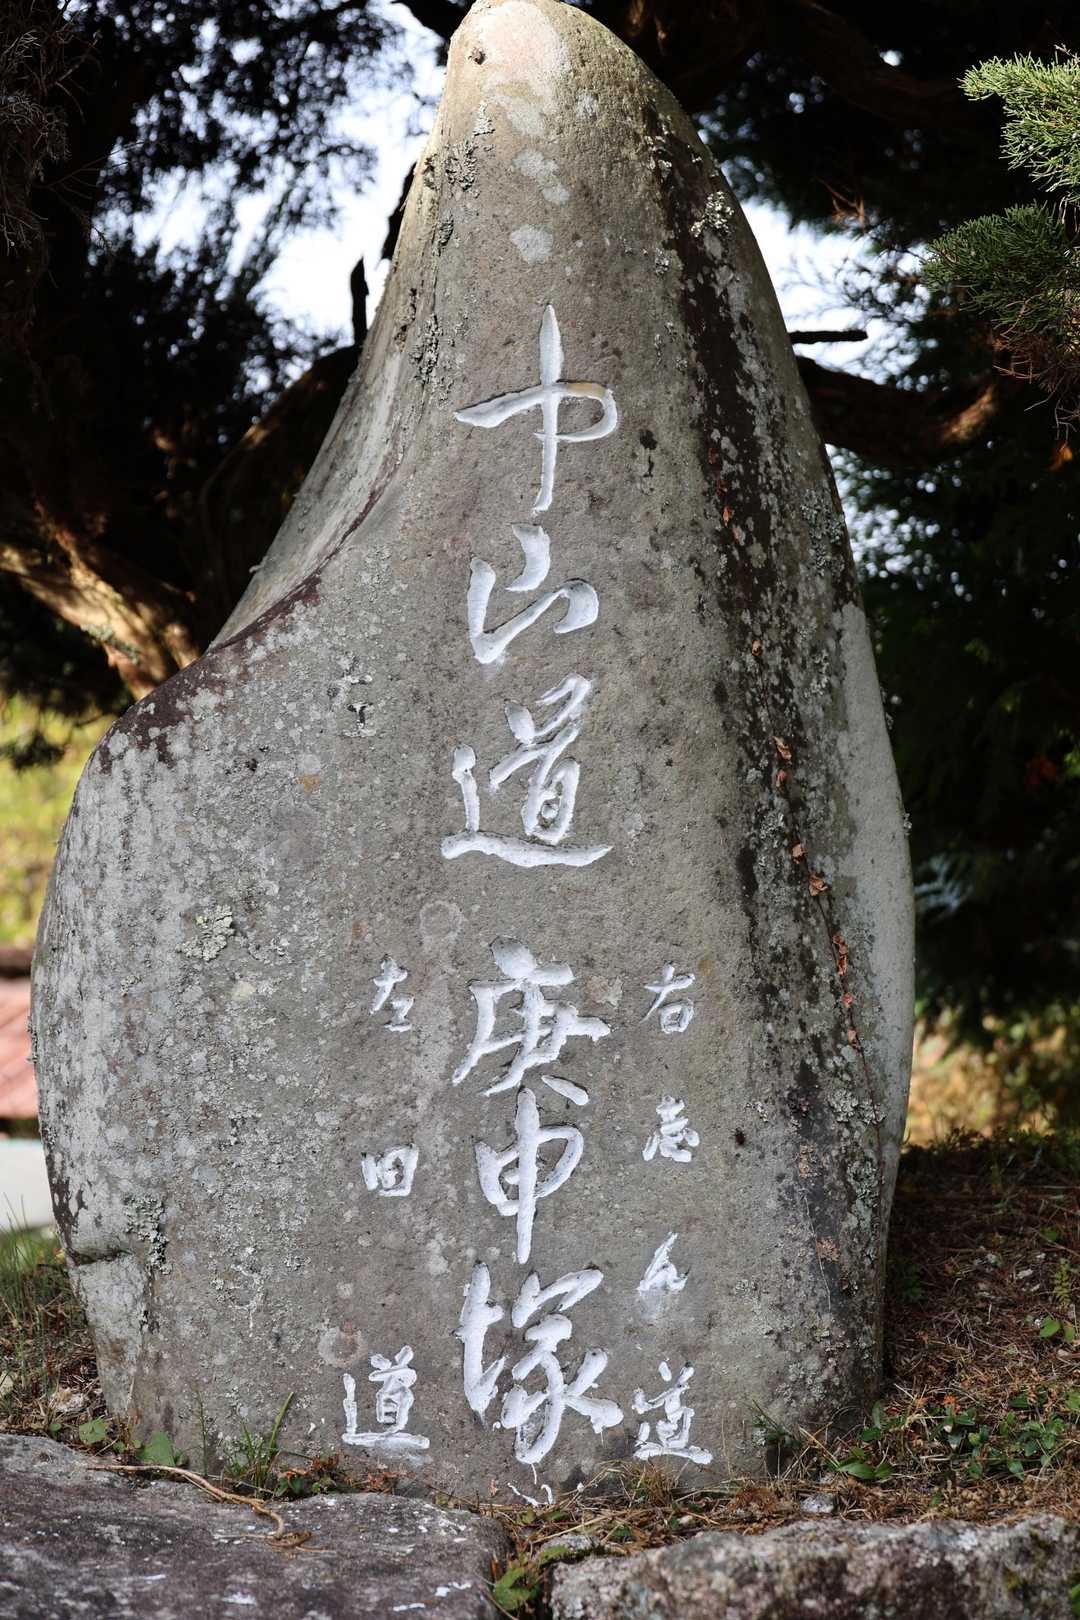 右志ん道
中山道庚申塚
左旧道